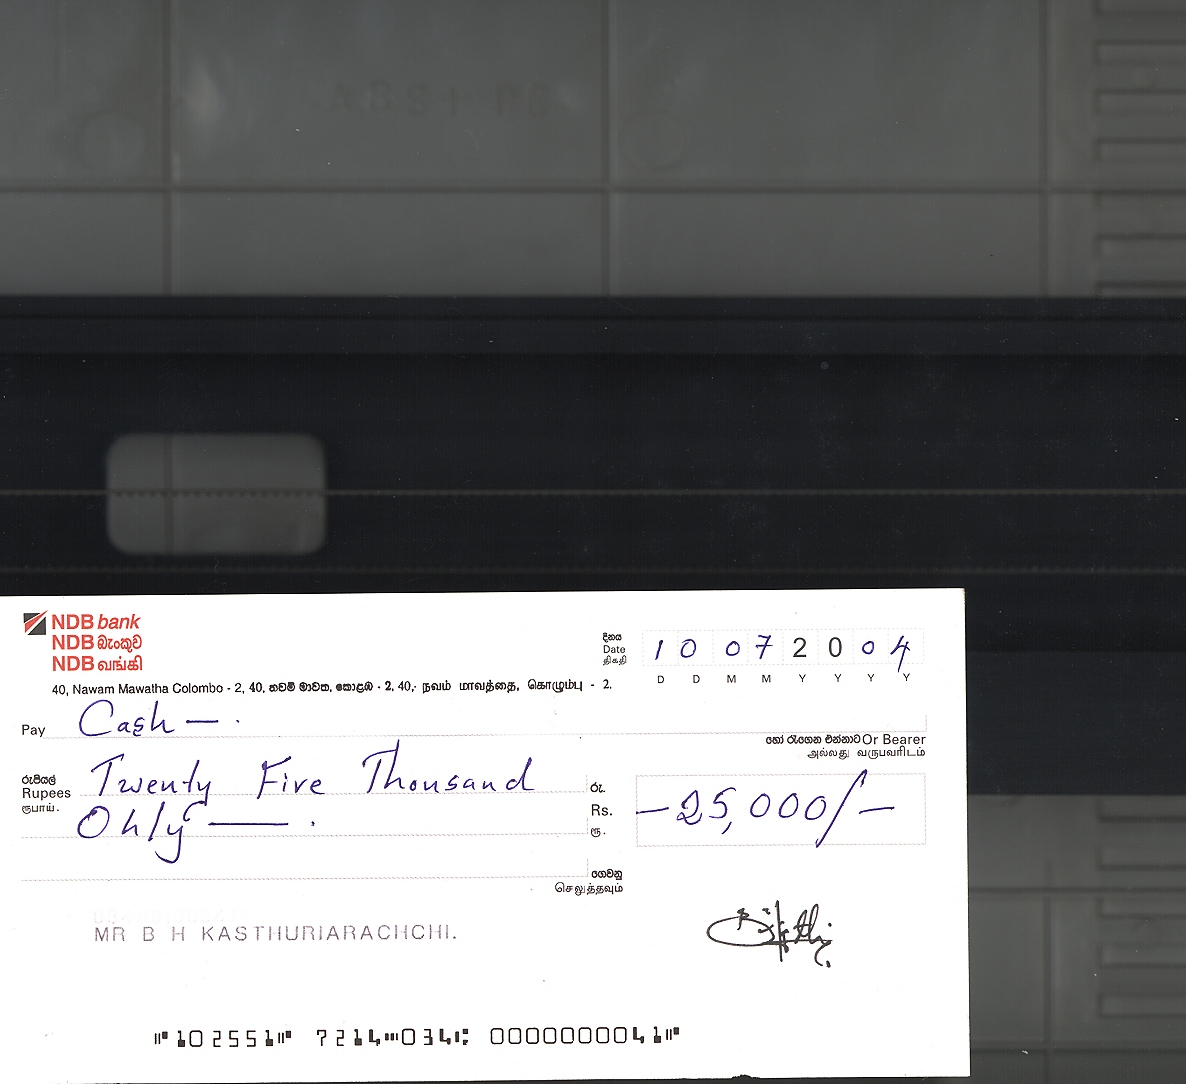 NDB bank
NDB බැංකුව
NDB வங்கி
40, Nawam Mawatha Colombo - 2, 40, නවම් මාවත, කොළඹ - 2, 40,- நவம் மாவத்தை, கொழும்பு - 2.
දිනය
Date
திகதி
1 0 0 7 2 0 0 4
D D M M Y Y Y Y
Pay Cash — .
හෝ රැගෙන එන්නාට Or Bearer
அல்லது வருபவரிடம்
රුපියල්
Rupees
ரூபாய்.
Twenty Five Thousand
Only — .
රු.
Rs.
ரூ.
— 25,000/—
ගෙවනු
செலுத்தவும்
MR B H KASTHURIARACHCHI.
⑈102551⑈ 7214⑉034⑆ 0000000041⑈